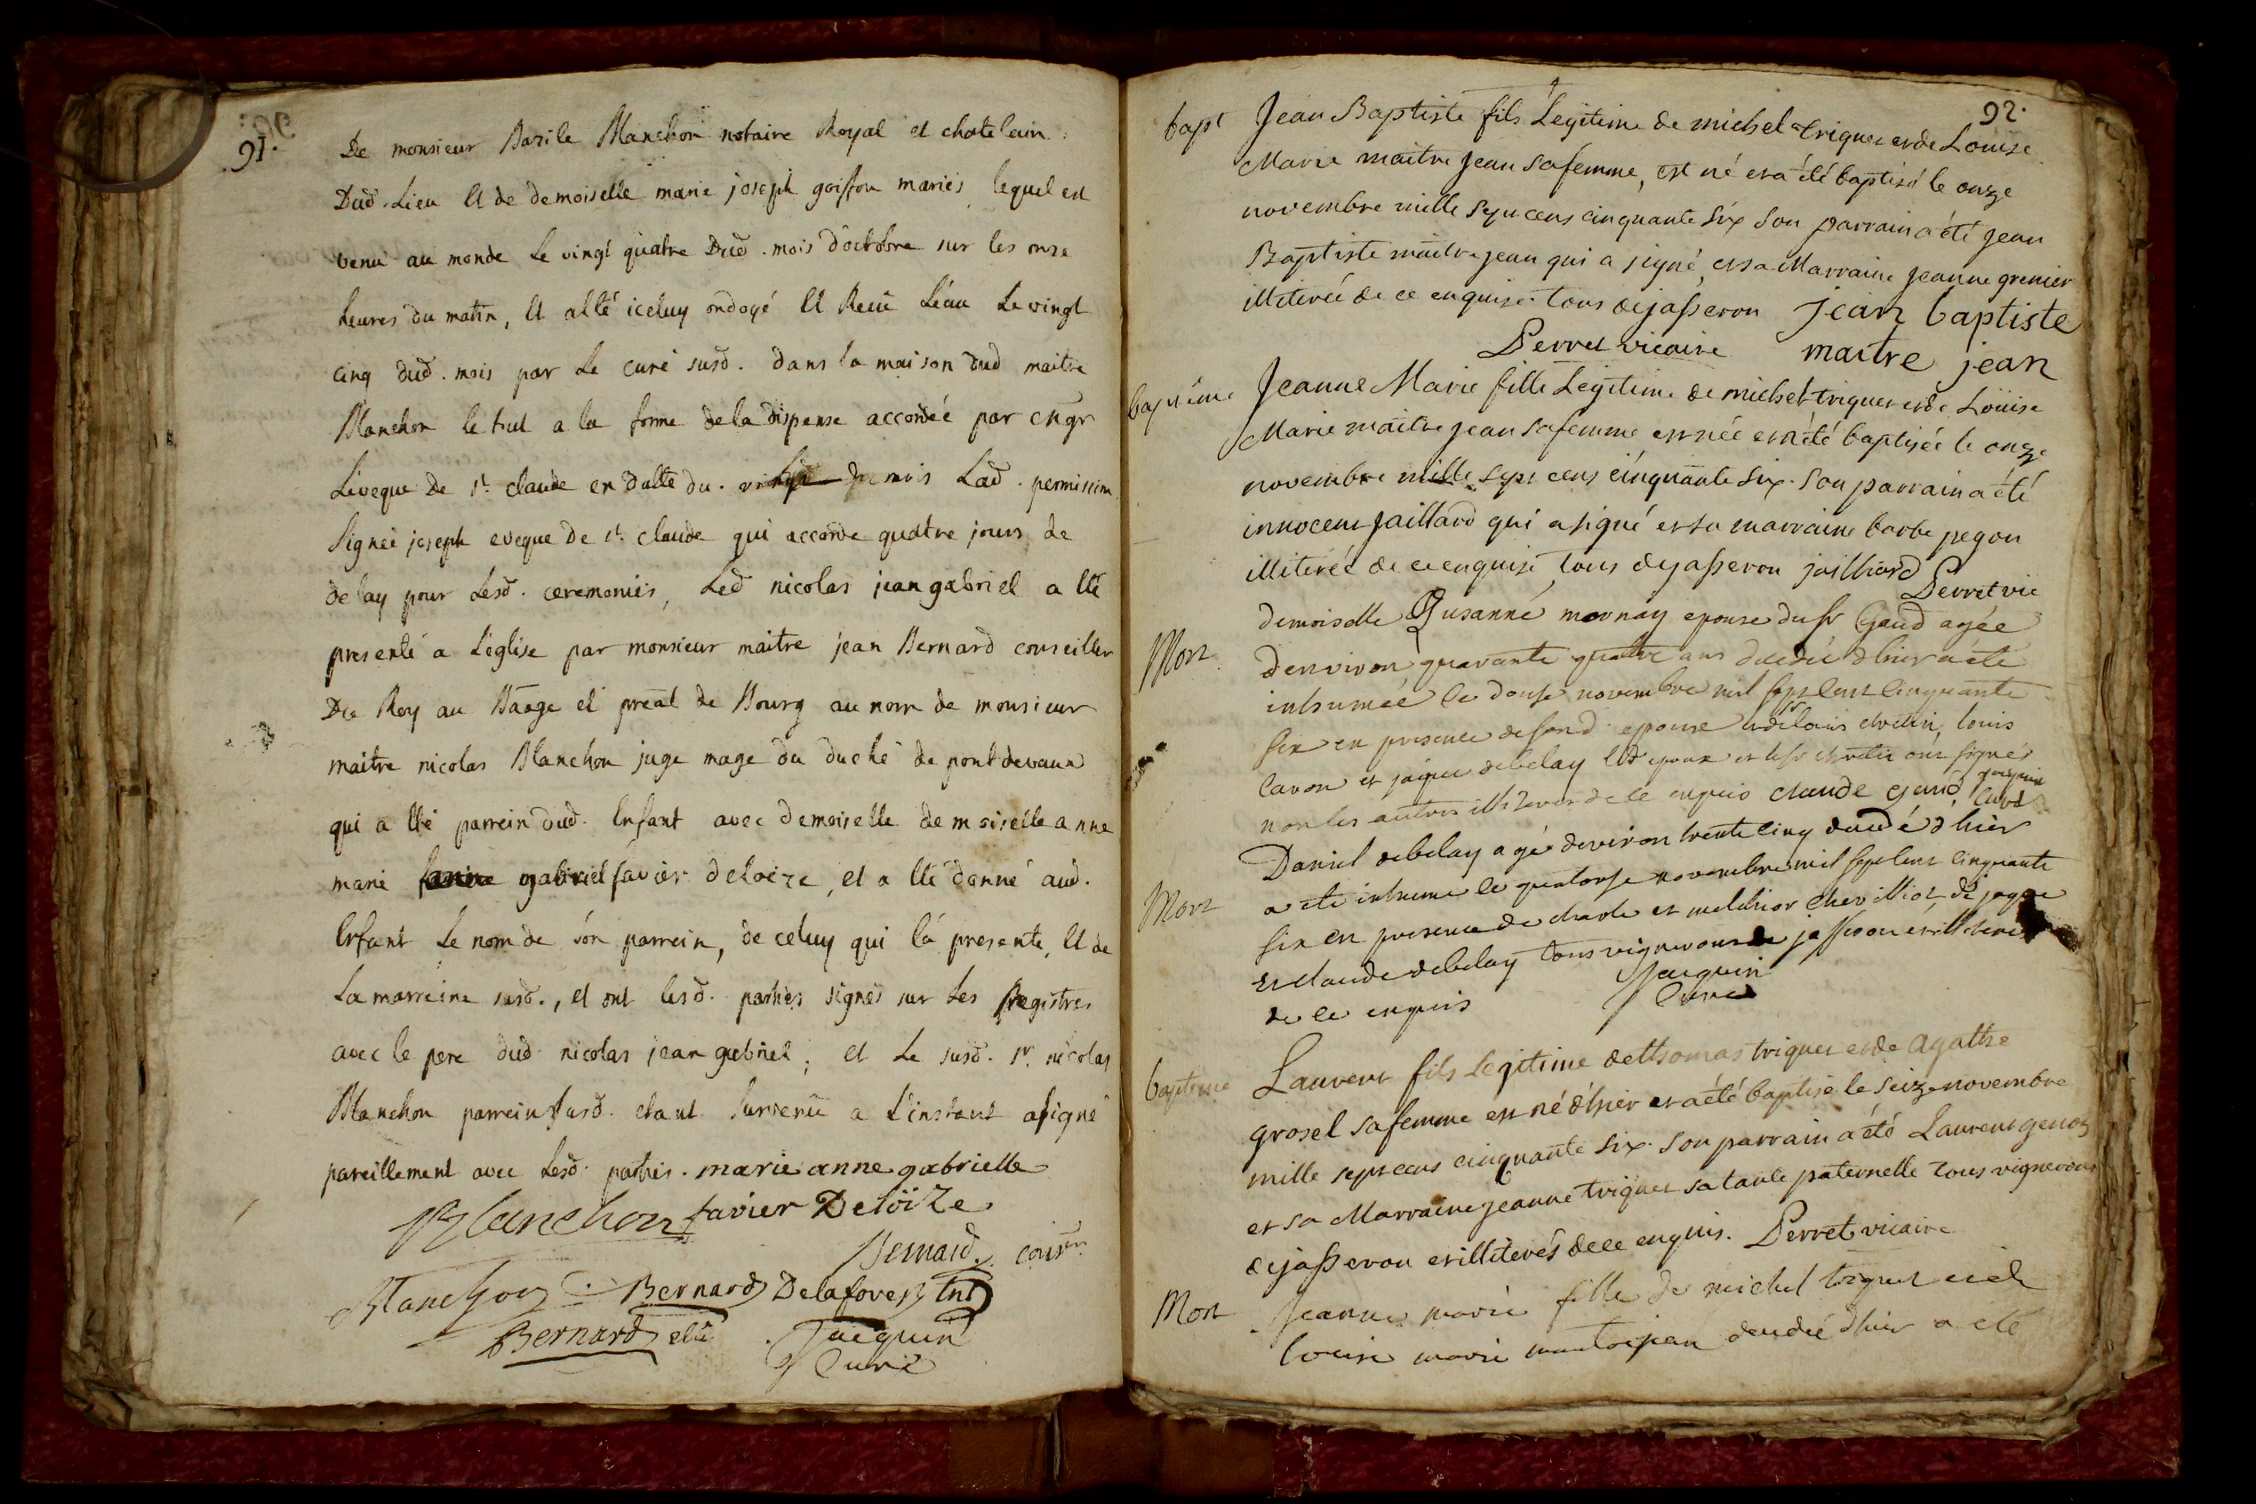 91.
De monsieur Bazile Blanchon notaire Royal et chatelain
Dud. Lieu Et de demoiselle marie joseph goiffon mariés, lequel est
venu au monde Le vingt quatre Dud. mois d'octobre sur les onze
heures du matin, Et a été iceluy ondoyé Et Reçu L'eau Le vingt
cinq dud. mois par Le curé susd. dans la maison dud maitre
Blanchon le tout a la forme de la dispense accordée par
L'eveque de St. claude en datte du mois Lad. permission
Signée joseph eveque de St. claude qui accorde quatre jours de
delay pour Lesd. ceremonies, Led nicolas jean gabriel a été
presenté a L'église par monsieur maitre jean Bernard conseiller
Du Roy au Baage et preāl de Bourg au nom de monsieur
maitre nicolas Blanchon juge mage du duché de pontdevaux
qui a été parrein dud. Enfant avec demoiselle demoiselle anne
marie gabriel favier deloize, et a été donné aud.
Enfant Le nom de son parrein, de celuy qui l'a presenté, Et de
La marreine susd., et ont lesd. parties signés sur Les Registres
avec le pere dud nicolas jean gabriel; et Le susd. Sr. nicolas
Blanchon parrein susd. etant survenu a L'instant a signé
pareillement avec Lesd. parties. marie anne gabrielle
Blanchon favier Deloïze
Bernard consr
Blanchon Bernard Delaforest
Bernard Jacquin
Curé
92.
bapt Jean Baptiste fils Legitime de michel triquet et de Louise
Marie maitre jean sa femme, est né et a été baptisé le onze
novembre mille sept cens cinquante six son parrain a été jean
Baptiste maitre jean qui a signé, et sa Marraine jeanne grenier
illiterée de ce enquise tous de jasseron jean baptiste
Perret vicaire maitre jean
baptême Jeanne Marie fille Legitime de michel triquet et de Loüise
Marie maitre jean sa femme est née et a été baptisée le onze
novembre mille sept cens cinquante six. son parrain a été
innocent jaillard qui a signé et sa marraine barbe pegon
illiterée de ce enquise, tous de jasseron jailliard
Perret vic
Mort demoiselle Susanne mornay epouse du sr Gaud agée
d'environ quarante quatre ans decedée d'hier a été
inhumée le douse novembre mil sept cent cinquante
six en presence de son d epoux et de sr Louis chretin, Louis
lavon et jaque debelay led epoux et le sr chretin ont signés
non les autres illiterés de ce enquis claude gaud jacquin
curé
Mort Daniel debelay agé d'environ trente cinq decedé d'hier
a été inhumé le quatorse novembre mil sept cent cinquante
six en presence de charle et melchior chevilliot, de jaque
et claude debelay tous vignerons de jasseron et illiterés
de ce enquis Jacquin
Curé
baptême Laurent fils legitime de thomas triquet et de agathe
grosel sa femme est né d'hier et a été baptisé le seize novembre
mille sept cens cinquante six. son parrain a été Laurent genod
et sa Marraine jeanne triquet sa tante paternelle tous vignerons
de jasseron et illiterés de ce enquis. Perret vicaire
Mort Jeanne marie fille de michel triquet et de
louise marie maitre jean decedée d'hier a été